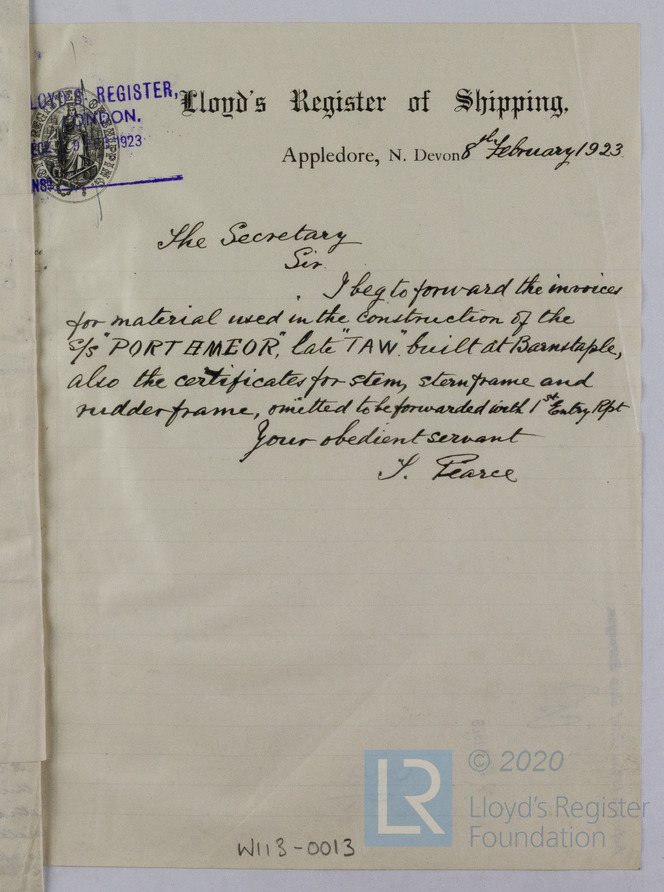 LLOYD'S REGISTER,
LONDON.
1923
Lloyd's Register of Shipping,
Appledore, N. Devon 8th February 1923
The Secretary
Sir
I beg to forward the invoices
for material used in the construction of the
S/S "PORTHMEOR", late "TAW" built at Barnstaple,
also the certificates for stem, sternframe and
rudderframe, omitted to be forwarded with 1st Entry Rpt
Your obedient servant
J. Pearce
W113-0013
LR
© 2020
Lloyd's Register
Foundation